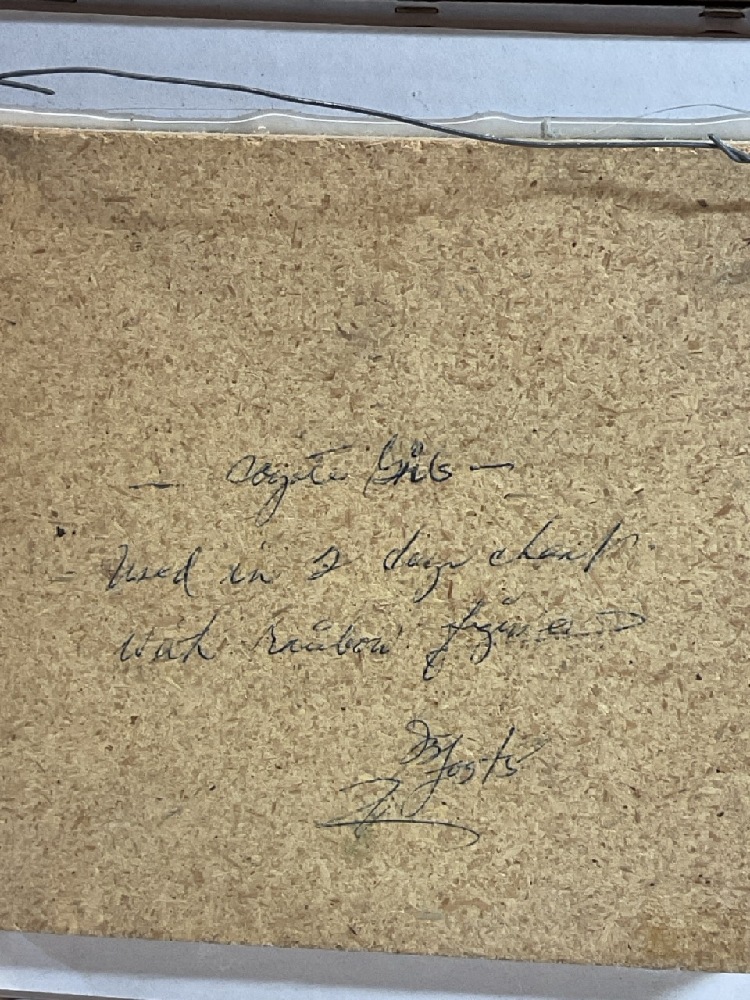 - Coyote Girls -
Used in 2 days chant
with rainbow figures